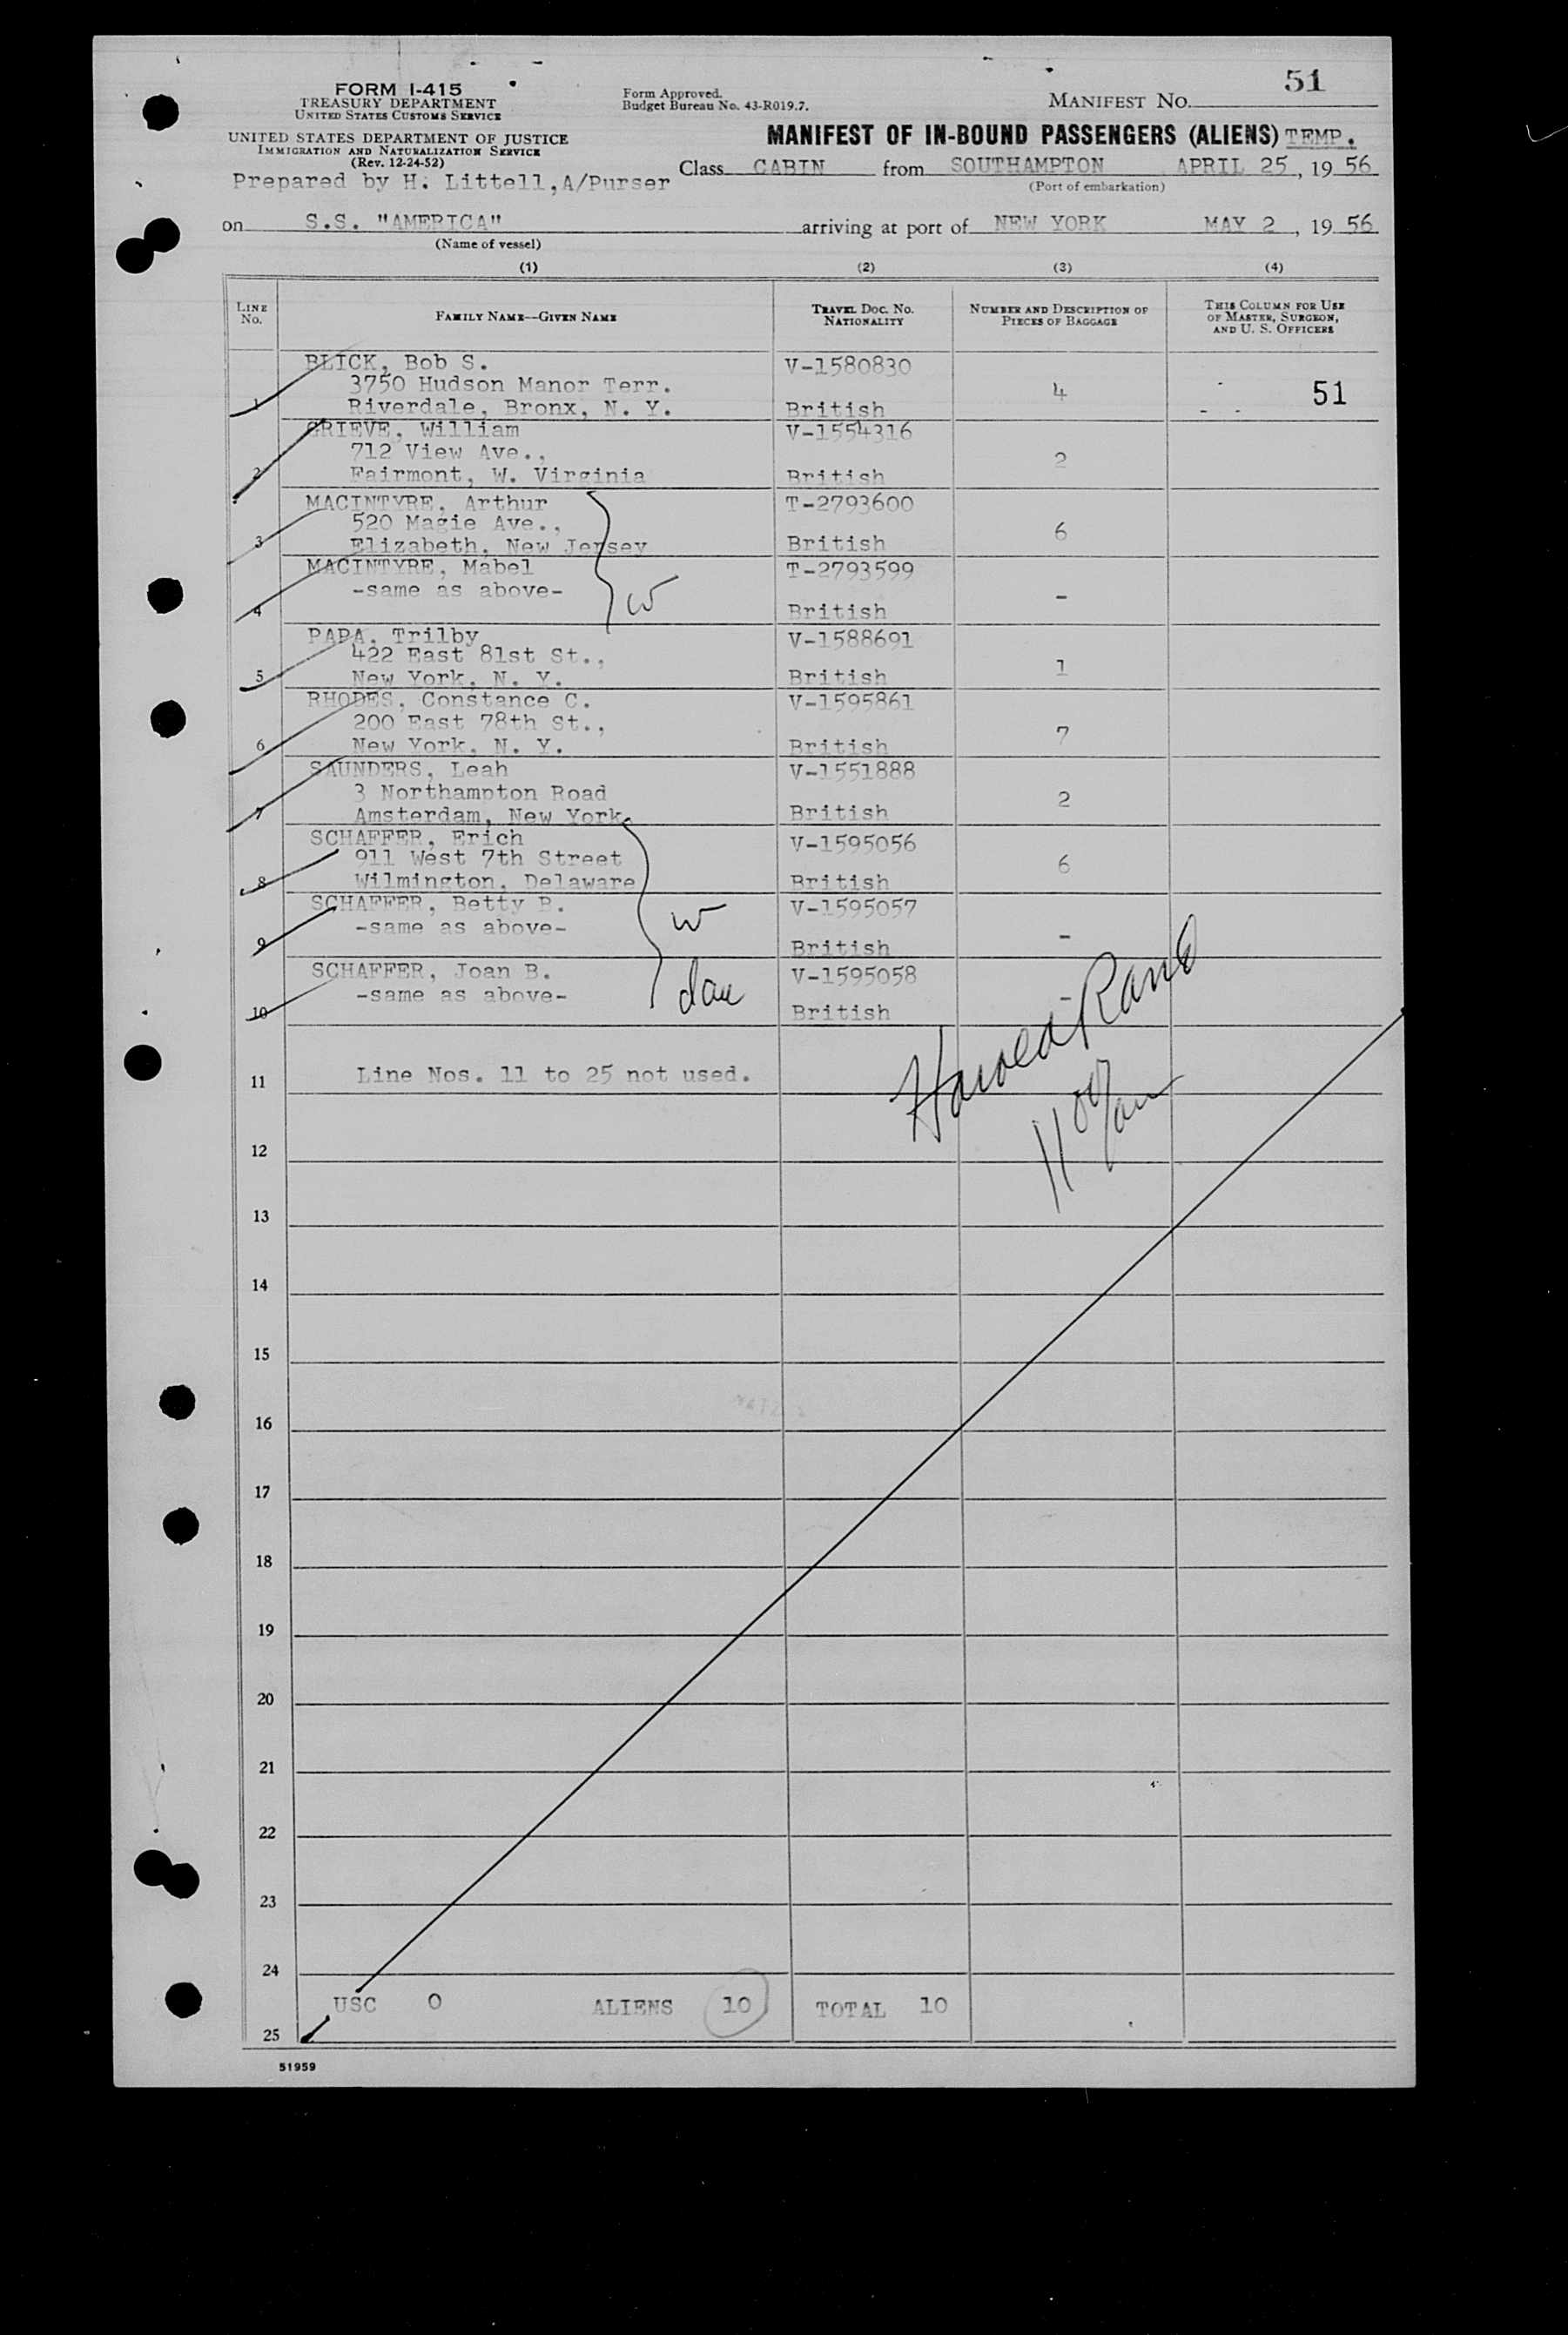 51
FORM I-415
TREASURY DEPARTMENT
UNITED STATES CUSTOMS SERVICE
Form Approved.
Budget Bureau No. 43-R019.7.
MANIFEST NO.
UNITED STATES DEPARTMENT OF JUSTICE
IMMIGRATION AND NATURALIZATION SERVICE
(Rev. 12-24-52)
MANIFEST OF IN-BOUND PASSENGERS (ALIENS) TEMP.
Prepared by H. Littell,A/Purser
Class CABIN from SOUTHAMPTON APRIL 25, 19 56
(Port of embarkation)
on S.S. "AMERICA" arriving at port of NEW YORK MAY 2, 19 56
(Name of vessel)
(1) (2) (3) (4)
LINE No.
FAMILY NAME—GIVEN NAME
TRAVEL DOC. NO. NATIONALITY
NUMBER AND DESCRIPTION OF PIECES OF BAGGAGE
THIS COLUMN FOR USE OF MASTER, SURGEON, AND U. S. OFFICERS
BLICK, Bob S. V-1580830
3750 Hudson Manor Terr. 4 51
1 Riverdale, Bronx, N. Y. British
GRIEVE, William V-1554316
712 View Ave., 2
2 Fairmont, W. Virginia British
MACINTYRE, Arthur T-2793600
520 Magie Ave., 6
3 Elizabeth, New Jersey British
MACINTYRE, Mabel T-2793599
-same as above- w -
4 British
PAPA, Trilby V-1588691
422 East 81st St., 1
5 New York, N. Y. British
RHODES, Constance C. V-1595861
200 East 78th St., 7
6 New York, N. Y. British
SAUNDERS, Leah V-1551888
3 Northampton Road 2
7 Amsterdam, New York British
SCHAFFER, Erich V-1595056
911 West 7th Street 6
8 Wilmington, Delaware British
SCHAFFER, Betty B. V-1595057
-same as above- w -
9 British
SCHAFFER, Joan B. V-1595058
-same as above- dau -
10 British
Harold
11 Line Nos. 11 to 25 not used.
11 00/am
12
13
14
15
16
17
18
19
20
21
22
23
24
USC 0 ALIENS 10 TOTAL 10
25
51959